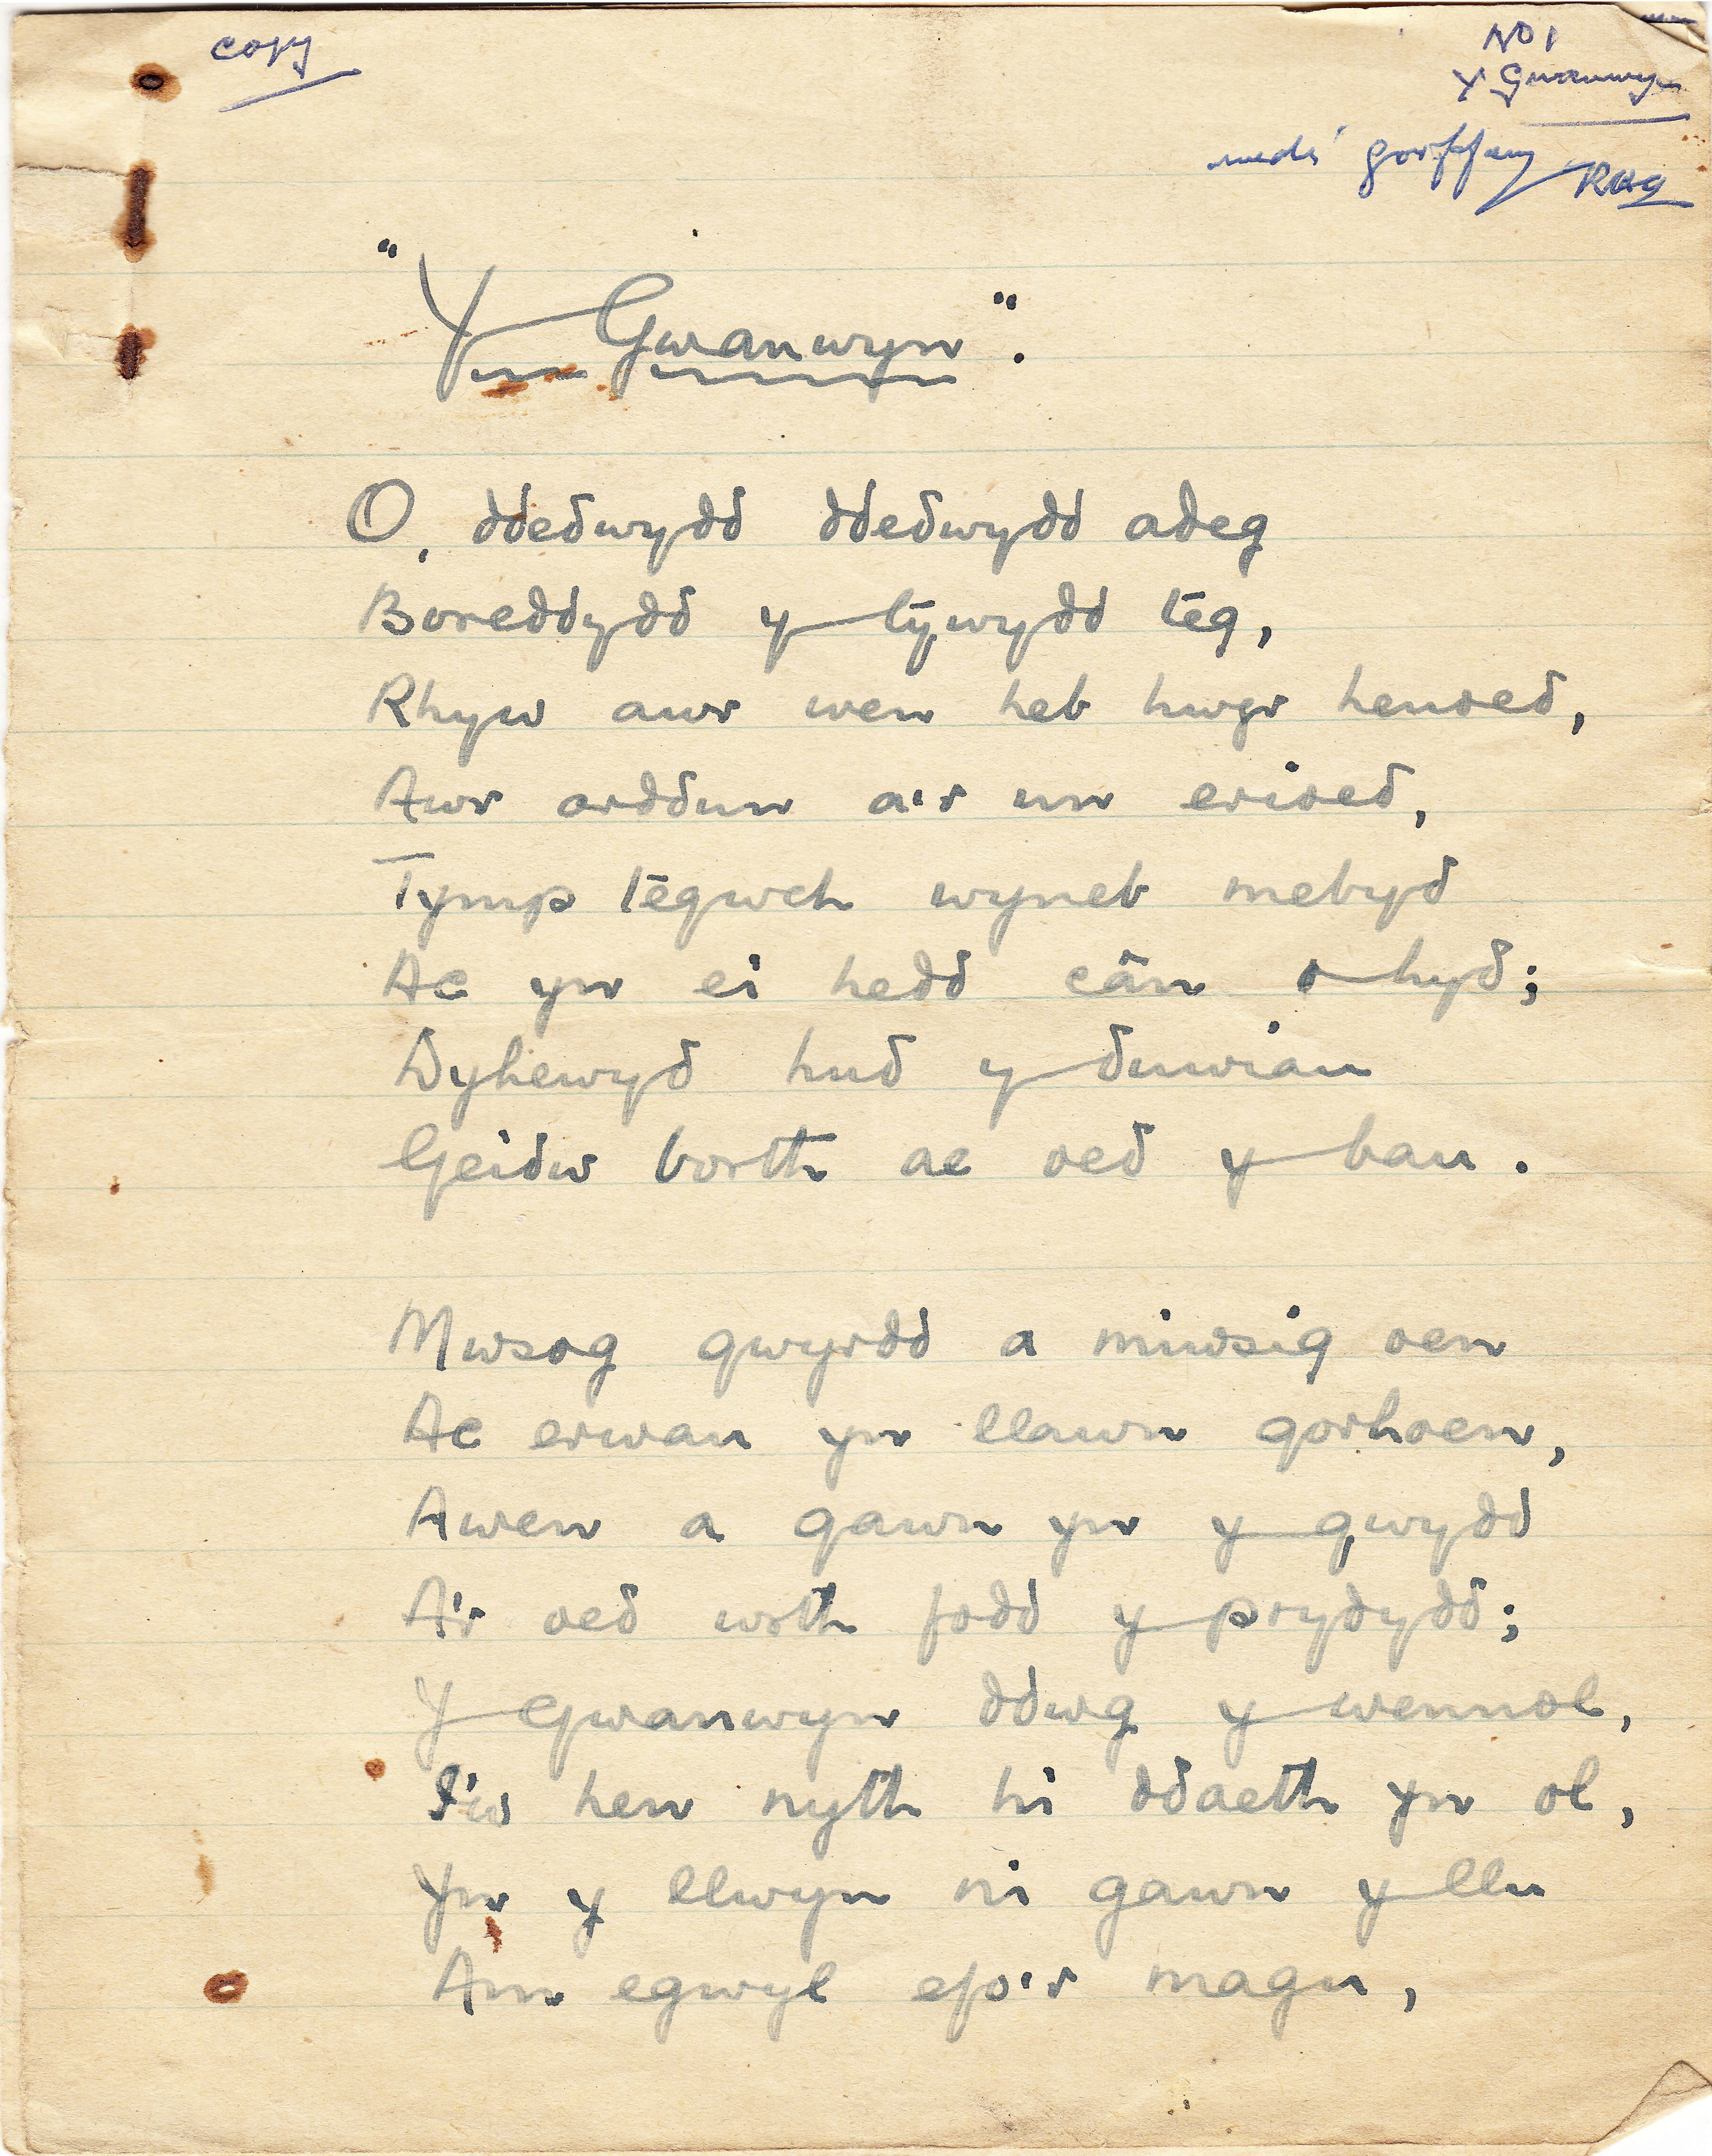 copy
No 1
Y Gwanwyn
wedi gorffen
"Y Gwanwyn".
O, ddedwydd ddedwydd adeg
Boreddydd y tywydd teg,
Rhyw awr wen heb hwyr henoed,
Awr arddun a'r un erioed,
Tymp tegwch wyneb mebyd
Ac yn ei hedd cân o hyd;
Dyhewyd hud y duwiau
Geidw borth ac oed y bau.
Mwsog gwyrdd a miwsig oen
Ac erwau yn llawn gorhoen,
Awen a gawn yn y gwydd
A'r oed wrth fodd y prydydd;
Y Gwanwyn ddwg y wennol,
I'w hen nyth hi ddaeth yn ol,
Yn y llwyn ni gawn y llu
Am egwyl efo'r magu,